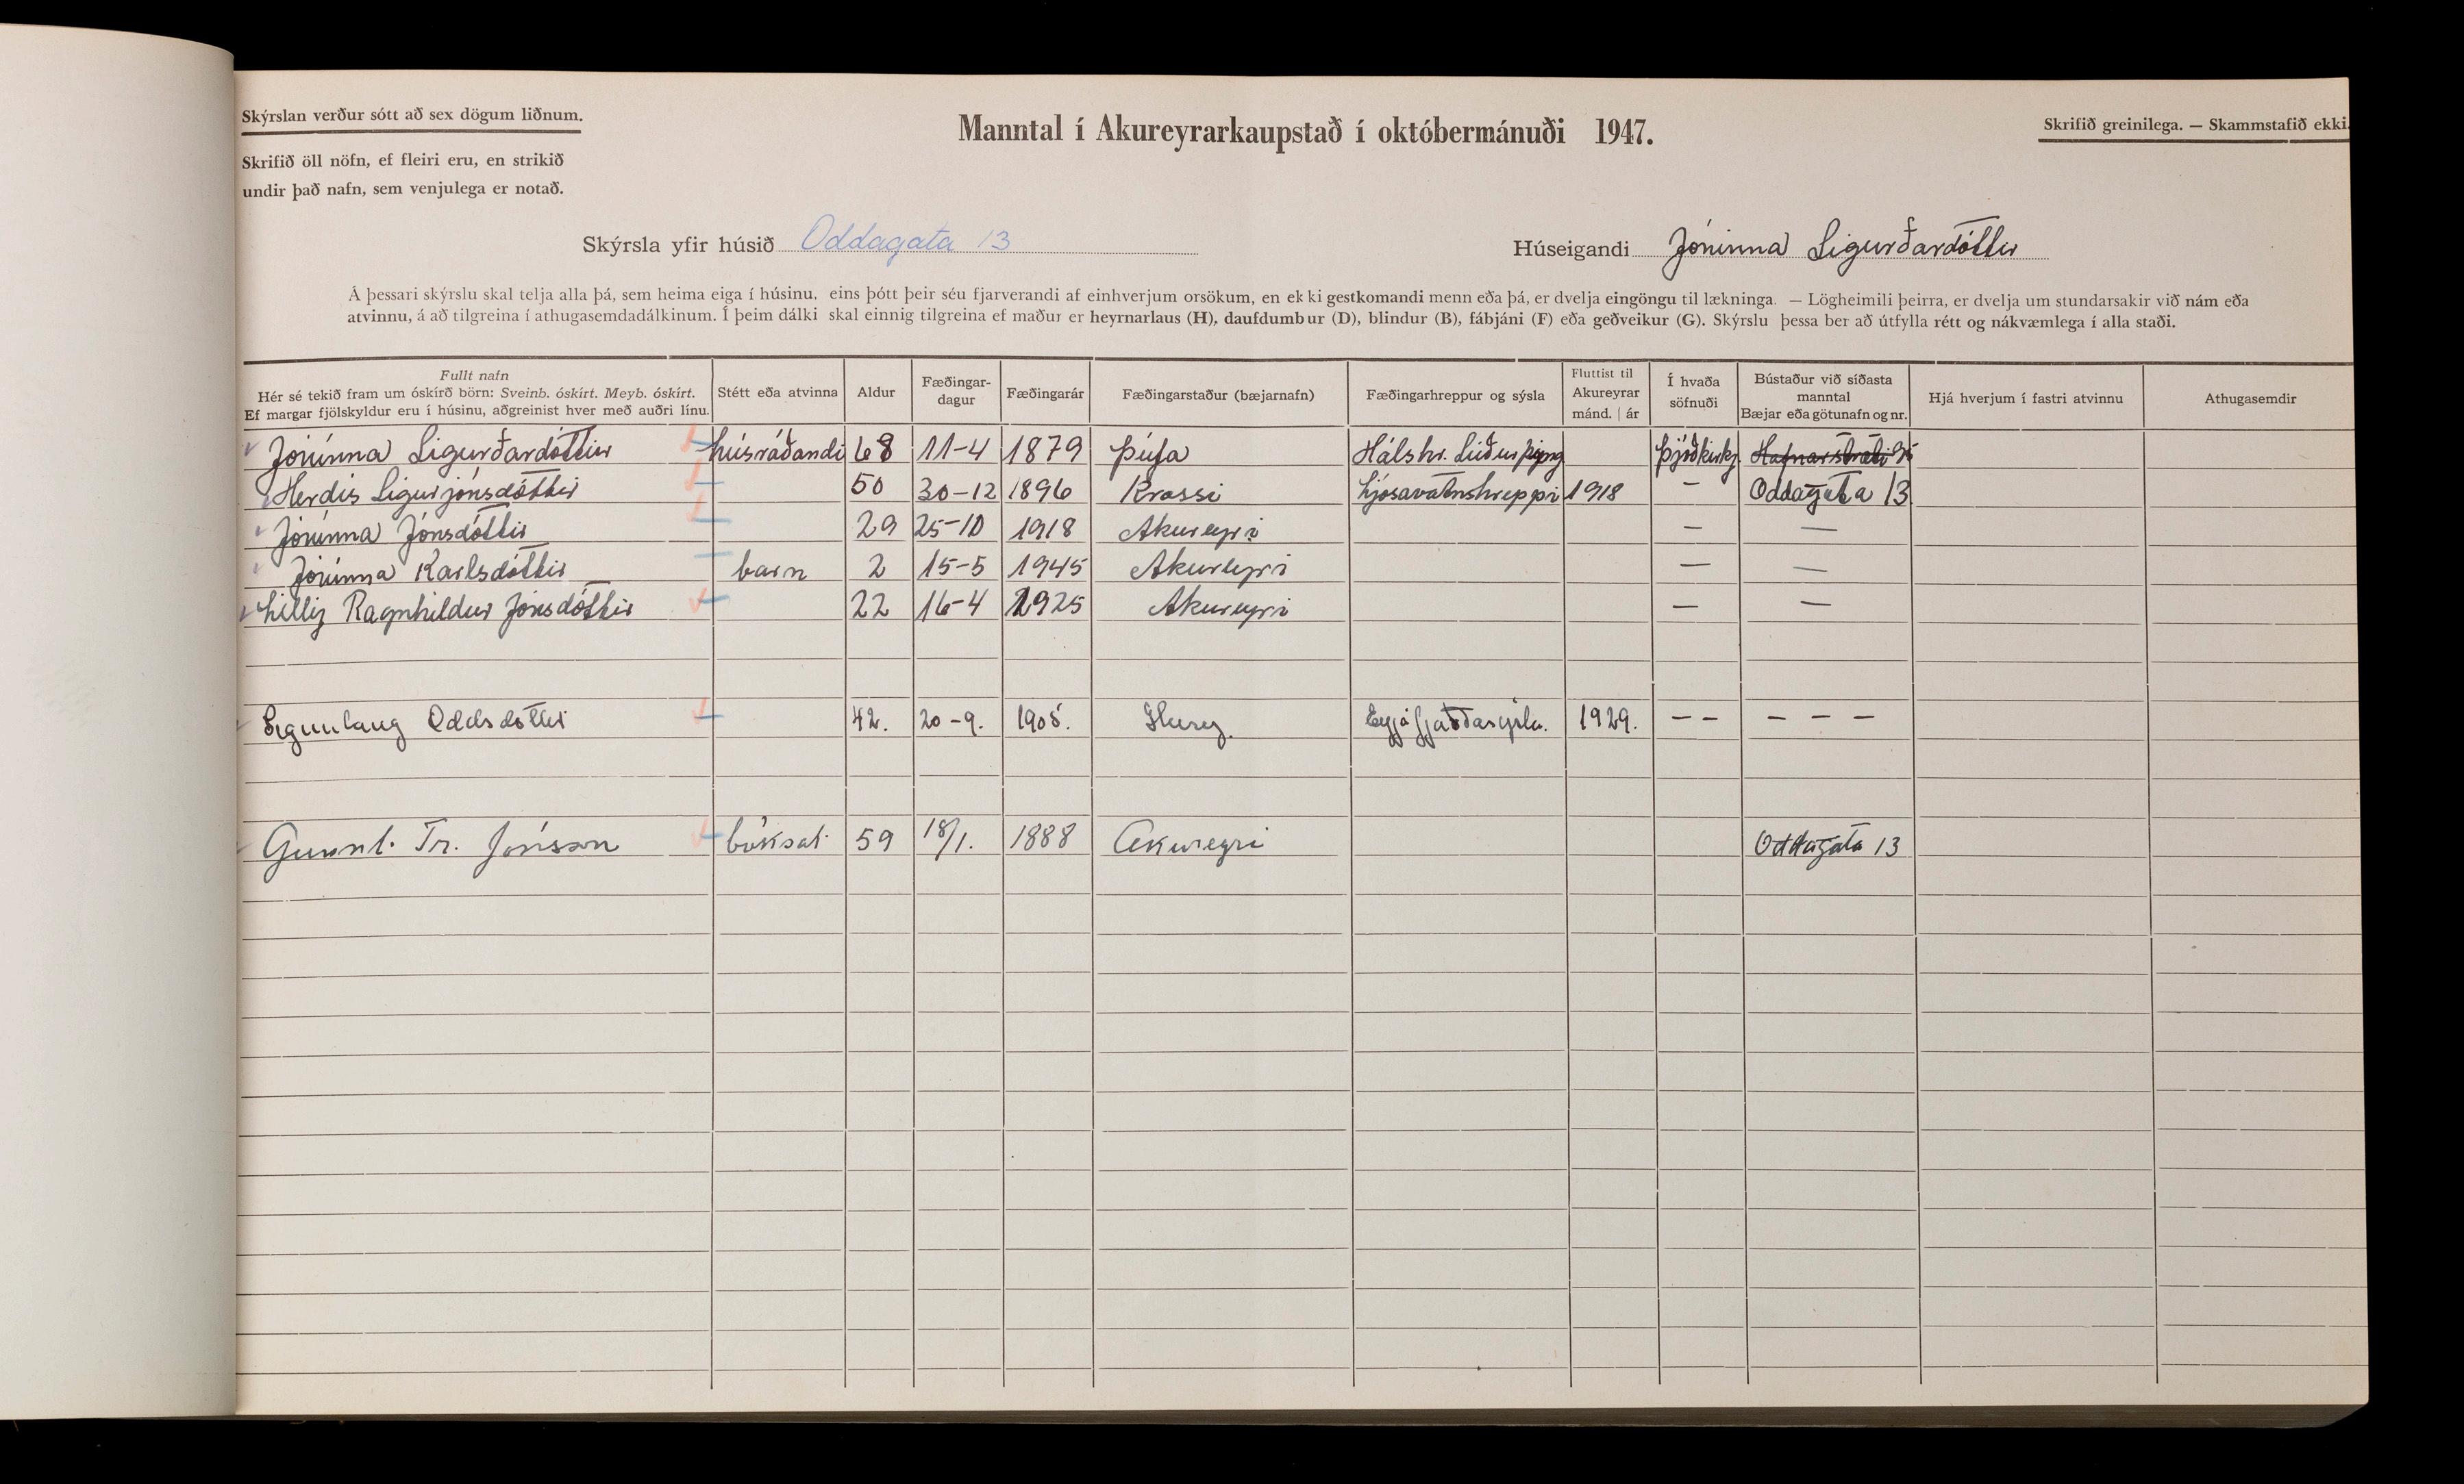 Skýrslan verður sótt að sex dögum liðnum.
Manntal í Akureyrarkaupstað í októbermánuði 1947.
Skrifið greinilega. — Skammstafið ekki.
Skrifið öll nöfn, ef fleiri eru, en strikið
undir það nafn, sem venjulega er notað.
Skýrsla yfir húsið Oddagata 13
Húseigandi Jóninna Sigurðardóttir
Á þessari skýrslu skal telja alla þá, sem heima eiga í húsinu, eins þótt þeir séu fjarverandi af einhverjum orsökum, en ekki gestkomandi menn eða þá, er dvelja eingöngu til lækninga. — Lögheimili þeirra, er dvelja um stundarsakir við nám eða
atvinnu, á að tilgreina í athugasemdadálkinum. Í þeim dálki skal einnig tilgreina ef maður er heyrnarlaus (H), daufdumbur (D), blindur (B), fábjáni (F) eða geðveikur (G). Skýrslu þessa ber að útfylla rétt og nákvæmlega í alla staði.
Fullt nafn
Hér sé tekið fram um óskírð börn: Sveinb. óskírt. Meyb. óskírt.
Ef margar fjölskyldur eru í húsinu, aðgreinist hver með auðri línu.
Stétt eða atvinna
Aldur
Fæðingar-
dagur
Fæðingarár
Fæðingarstaður (bæjarnafn)
Fæðingarhreppur og sýsla
Fluttist til
Akureyrar
mánd. | ár
Í hvaða
söfnuði
Bústaður við síðasta
manntal
Bæjar eða götunafn og nr.
Hjá hverjum í fastri atvinnu
Athugasemdir
Jóninna Sigurðardóttir húsráðandi 68 11-4 1879 Þúfa Hálshr. Suðurþing Þjóðkirkj. Hafnarstræti
Herdís Sigurjónsdóttir 50 30-12 1896 Krossi Ljósavatnshreppi 1918 — Oddagata 13
Jóninna Jónsdóttir 29 25-10 1918 Akureyri — —
Jóninna Karlsdóttir barn 2 15-5 1945 Akureyri — —
Lillig Ragnhildur Jónsdóttir 22 16-4 1925 Akureyri — —
Sigurlaug Oddsdóttir 42. 20-9. 1905. Eyjafjarðarsýsla. 1929. — — — — —
Gunnl. Tr. Jónsson bóksali 59 18/1. 1888 Akureyri Oddagata 13